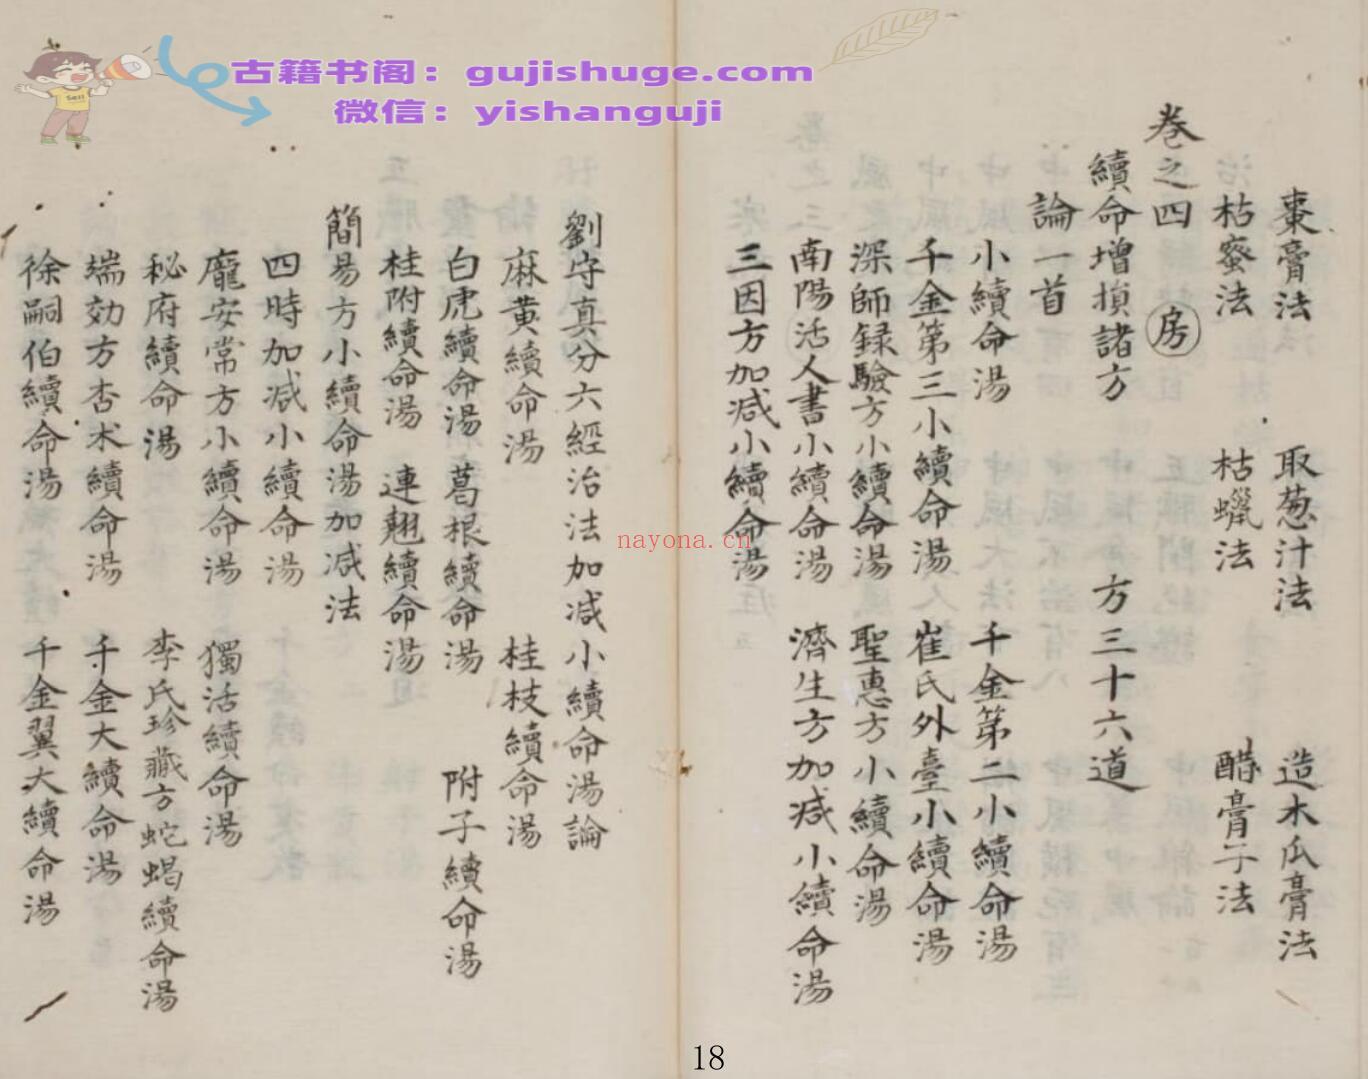 古籍书阁：gujishuge.com
微信：yishanguji
棗膏法　取葱汁法　造木瓜膏法
枯蜜法　枯蠟法　醋膏子法
卷之四　房
續命增損諸方　方三十六道
論一首
小續命湯　千金第二小續命湯
千金第三小續命湯　崔氏外臺小續命湯
深師録驗方小續命湯　聖惠方小續命湯
南陽活人書小續命湯　濟生方加减小續命湯
三因方加减小續命湯
劉守真分六經治法加减小續命湯論
麻黄續命湯　桂枝續命湯
白虎續命湯　葛根續命湯　附子續命湯
桂附續命湯　連翹續命湯
簡易方小續命湯加减法
四時加减小續命湯
龐安常方小續命湯　獨活續命湯
秘府續命湯　李氏珍藏方蛇蝎續命湯
端効方杏术續命湯　千金大續命湯
徐嗣伯續命湯　千金翼大續命湯
nayona.cn
18